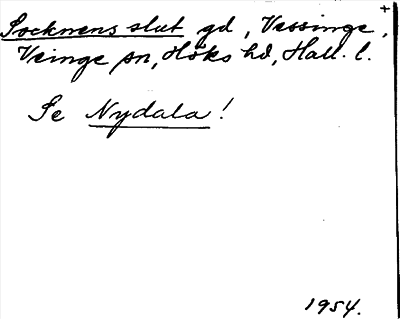 +
Socknens slut gd, Vessinge,
Veinge sn, Höks hd, Hall. l.
Se Nydala!
1954.